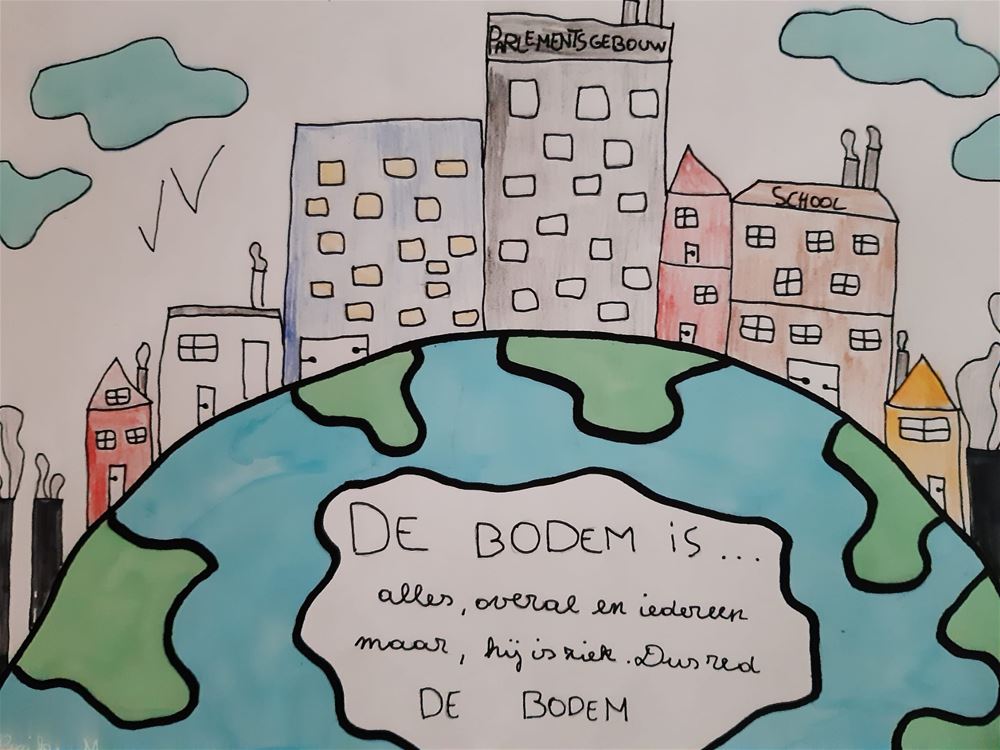 PARLEMENTSGEBOUW
SCHOOL
DE BODEM iS...
alles, overal en iedereen
maar, hij is ziek. Dus red
DE BODEM